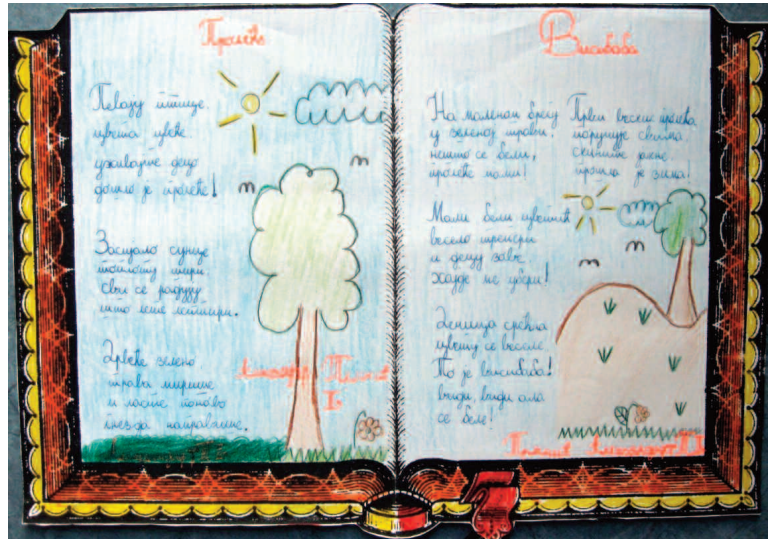 Пролеће
Певају птице,
цвета цвеће
уживајте децо
дошло је пролеће!
Засијало сунце
топлоту шири.
Сви се радују
што лете лептири.
Дрвеће зелено
трава мирише
и ласте поново
гнезда направише.
Висибаба
На маленом брегу
у зеленој трави,
нешто се бели,
пролеће мами!
Мали бели цветић
весело трепери
и децу зове.
Хајде ме убери!
Дечица срећна
цвету се веселе.
То је висибаба!
види, види ала
се беле!
Први весник пролећа
поручује свима
скините јакне
прошла је зима!